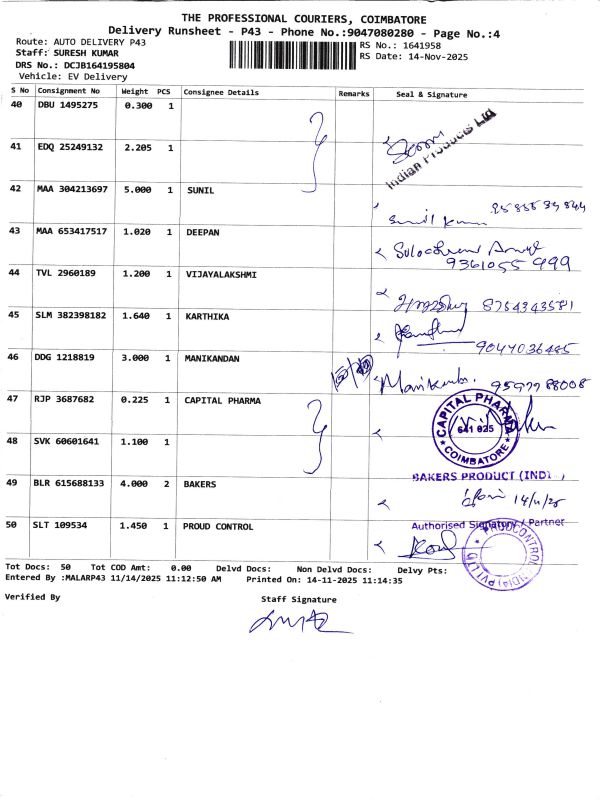 THE PROFESSIONAL COURIERS, COIMBATORE
Delivery Runsheet - P43 - Phone No.:9047080280 - Page No.:4
Route: AUTO DELIVERY P43
Staff: SURESH KUMAR
DRS No.: DCJB164195804
Vehicle: EV Delivery
RS No.: 1641958
RS Date: 14-Nov-2025
S No Consignment No Weight PCS Consignee Details Remarks Seal & Signature
40 DBU 1495275 0.300 1
41 EDQ 25249132 2.205 1
Indian Products Ltd
42 MAA 304213697 5.000 1 SUNIL
Sunil Kumar
43 MAA 653417517 1.020 1 DEEPAN
9361055 999
44 TVL 2960189 1.200 1 VIJAYALAKSHMI
8754343581
45 SLM 382398182 1.640 1 KARTHIKA
9047036485
46 DDG 1218819 3.000 1 MANIKANDAN
9597788008
47 RJP 3687682 0.225 1 CAPITAL PHARMA
CAPITAL PHARMA
641 025
COIMBATORE
48 SVK 60601641 1.100 1
BAKERS PRODUCT (INDI
49 BLR 615688133 4.000 2 BAKERS
14/11/25
Authorised Signatory / Partner
50 SLT 109534 1.450 1 PROUD CONTROL
Tot Docs: 50 Tot COD Amt: 0.00 Delvd Docs: Non Delvd Docs: Delvy Pts:
Entered By :MALARP43 11/14/2025 11:12:50 AM Printed On: 14-11-2025 11:14:35
Verified By
Staff Signature